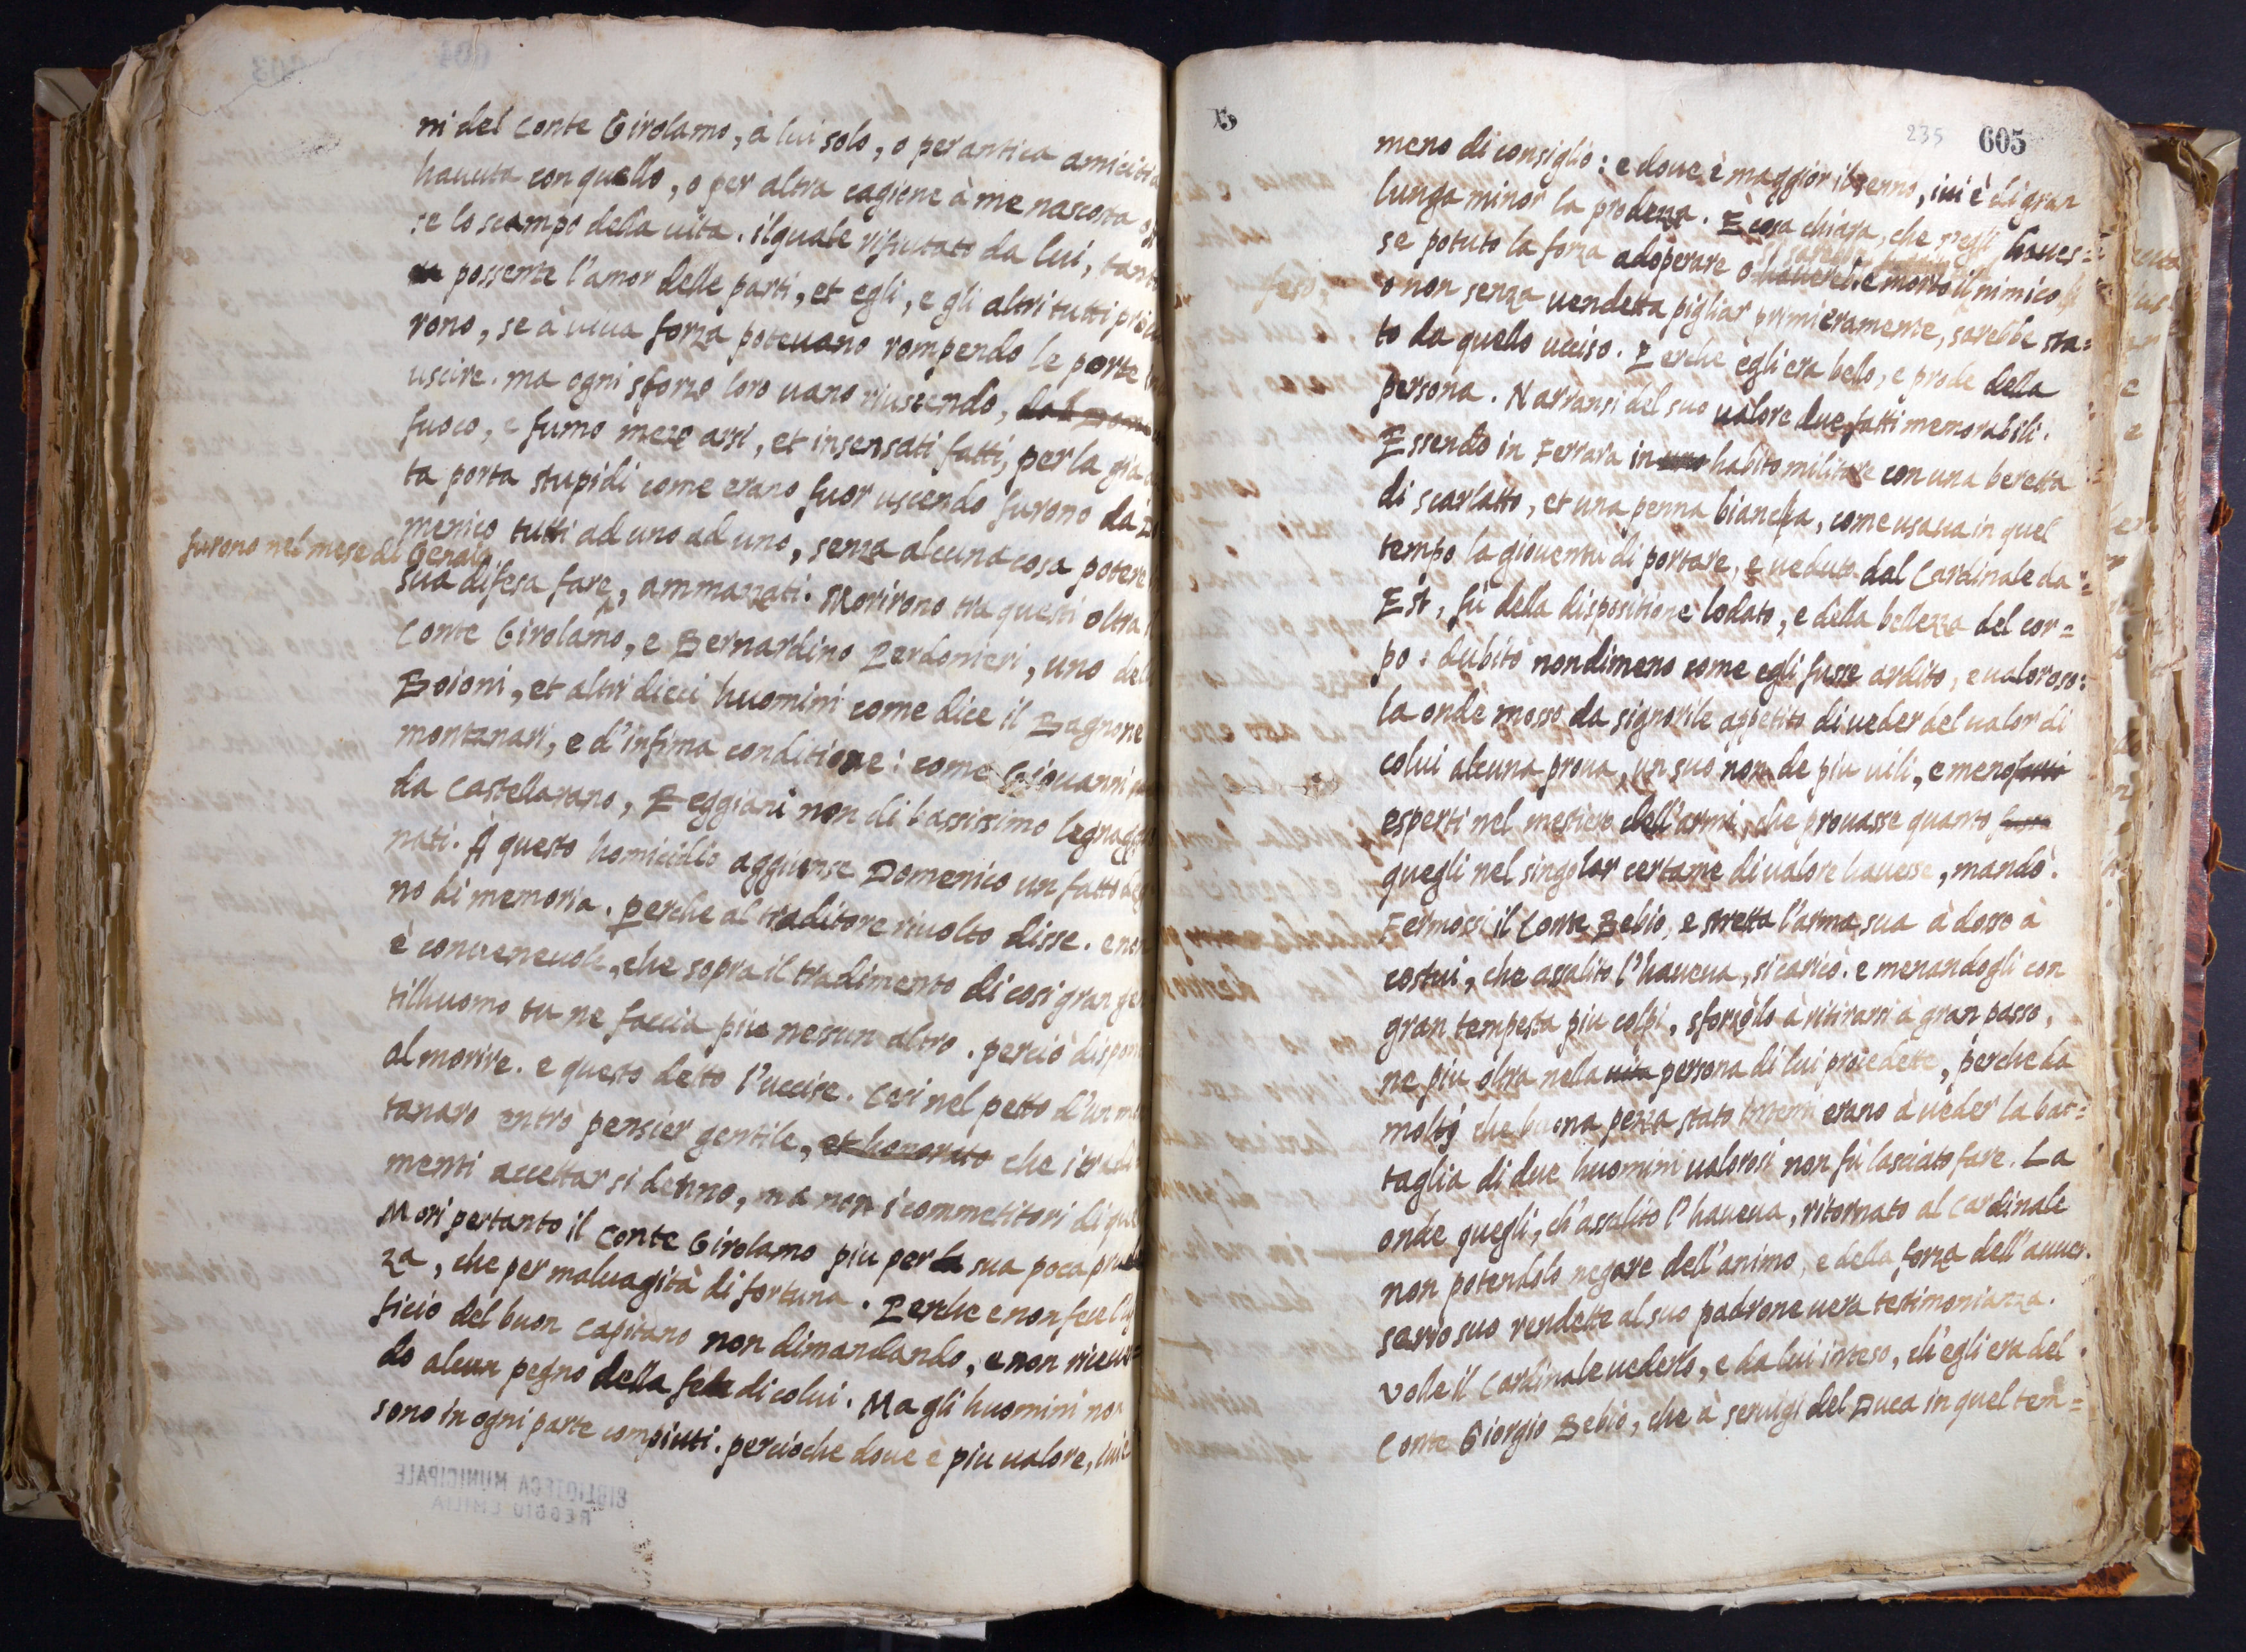 ni del Conte Girolamo, à lui solo, o per antica amicitia
hauuta con quello, o per altra cagione à me nascosta
se lo scampo della uita. ilquale rifiutato da lui, tanto
possente l'amor delle parti, et egli, e gli altri tutti
rono, se à uiua forza poteuano rompendo le porte
uscire. ma ogni sforzo loro uano riuscendo, dal Dome
fuoco, e fumo mezo arsi, et insensati fatti, per la già
ta porta stupidi come erano fuor uscendo furono da
menico tutti ad uno ad uno, senza alcuna cosa potere
furono nel mese di Genaio
sua difesa fare, ammazzati. Morirono tra questi oltra
Conte Girolamo, e Bernardino Zerdonieri, uno del
Boioni, et altri dieci huomini come dice il Bagnone
montanari, e d'infima conditione: come Giouanni
da Castellarano, Reggiani non di bassissimo legnaggio
nati. À questo homicidio aggiunse Domenico un fatto deg
no di memoria. perche al traditore riuolto disse. e non
è conueneuole, che sopra il tradimento di cosi gran gen
tilhuomo tu ne faccia piu nessun altro. perciò dispon
al morire. e questo detto l'uccise. Cosi nel petto d'un mon
tanaro entrò pensier gentile, et honorato che i tradi
menti accettar si denno, ma non i commettitori di que
Mori pertanto il Conte Girolamo piu per la sua poca pruden
za, che per maluagità di fortuna. Perche e non fece l'uf
ficio del buon Capitano non dimandando, e non riceuen=
do alcun pegno della fede di colui. Ma gli huomini non
sono in ogni parte compiuti. percioche doue è piu ualore, iui è
BIBLIOTECA MUNICIPALE
REGGIO EMILIA
235 605
meno di consiglio: e doue è maggior il senno, iui è di gran
lunga minor la prodezza. È cosa chiara, che s'egli haues=
se potuto la forza adoperare o hauerebbe morto il nimico
o non senza uendetta pigliar primieramente, sarebbe sta=
to da quello ucciso. Perche egli era bello, e prode della
persona. Narransi del suo ualore due fatti memorabili.
Essendo in Ferrara in uno habito militare con una beretta
di scarlatto, et una penna biancha, come usaua in quel
tempo la giouentù di portare, e ueduto dal Cardinale da
Est, fù della dispositione lodato, e della bellezza del cor=
po: dubitò nondimeno come egli fusse ardito, e ualoroso:
la onde mosso da signorile appetito di ueder del ualor di
colui alcuna proua, un suo non de piu uili, e meno forti
esperti nel mestiero dell'armi, che prouasse quanto fusse
quegli nel singolar certame di ualore hauesse, mandò.
Fermossi il Conte Bebio, e stretta l'arma sua à dosso à
costui, che assalito l'haueua, si caricò. e menandogli con
gran tempesta piu colpi, sforzolo à ritirarsi à gran passo,
ne piu oltra nella uita persona di lui procedette, perche da
molti che buona pezza stato intenti erano à ueder la bat=
taglia di due huomini ualorosi non fù lasciato fare. La
onde quegli, ch'assalito l'haueua, ritornato al Cardinale
non potendolo negare dell'animo, e della forza dell'auuer.
sario suo rendette al suo padrone uera testimonianza.
Volle il Cardinale uederlo, e da lui inteso, ch'egli era del
Conte Giorgio Bebio, che à seruigi del Duca in quel tem=